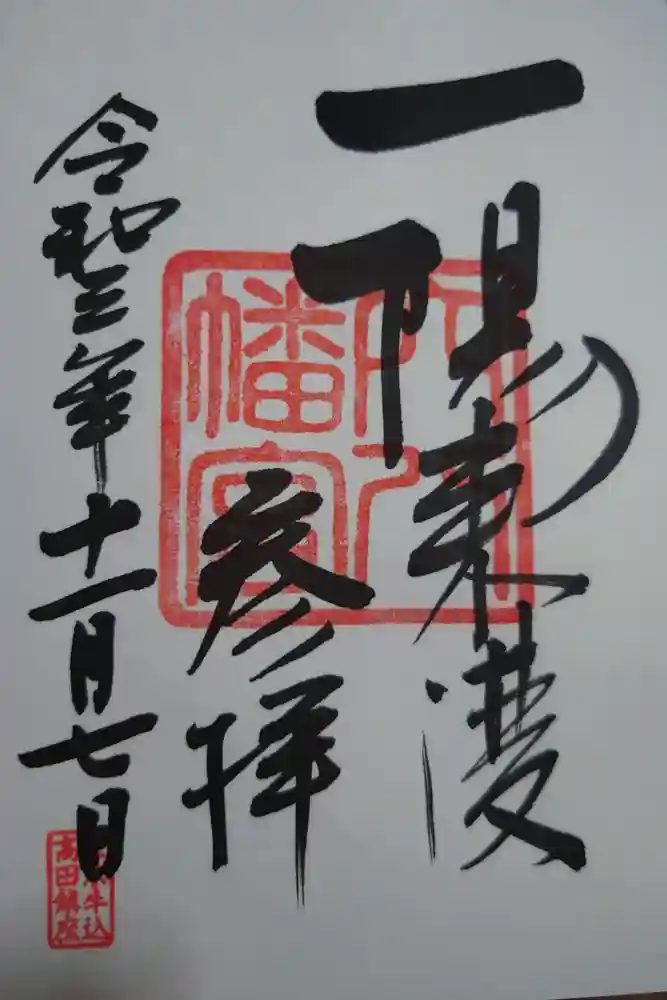 一陽来復
参拝
令和三年十一月七日
穴八
幡宮
牛込
高田鎮座